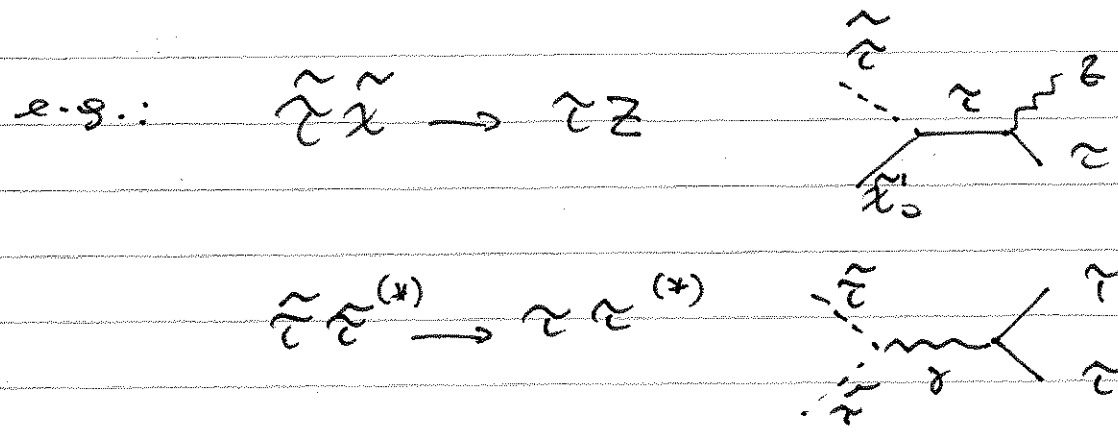 e.g.: τ̃ χ̃ → τ Z
τ̃ τ Z τ χ̃⁰₁
τ̃ τ̃^(*) → τ τ^(*)
τ̃ τ̃ γ τ τ